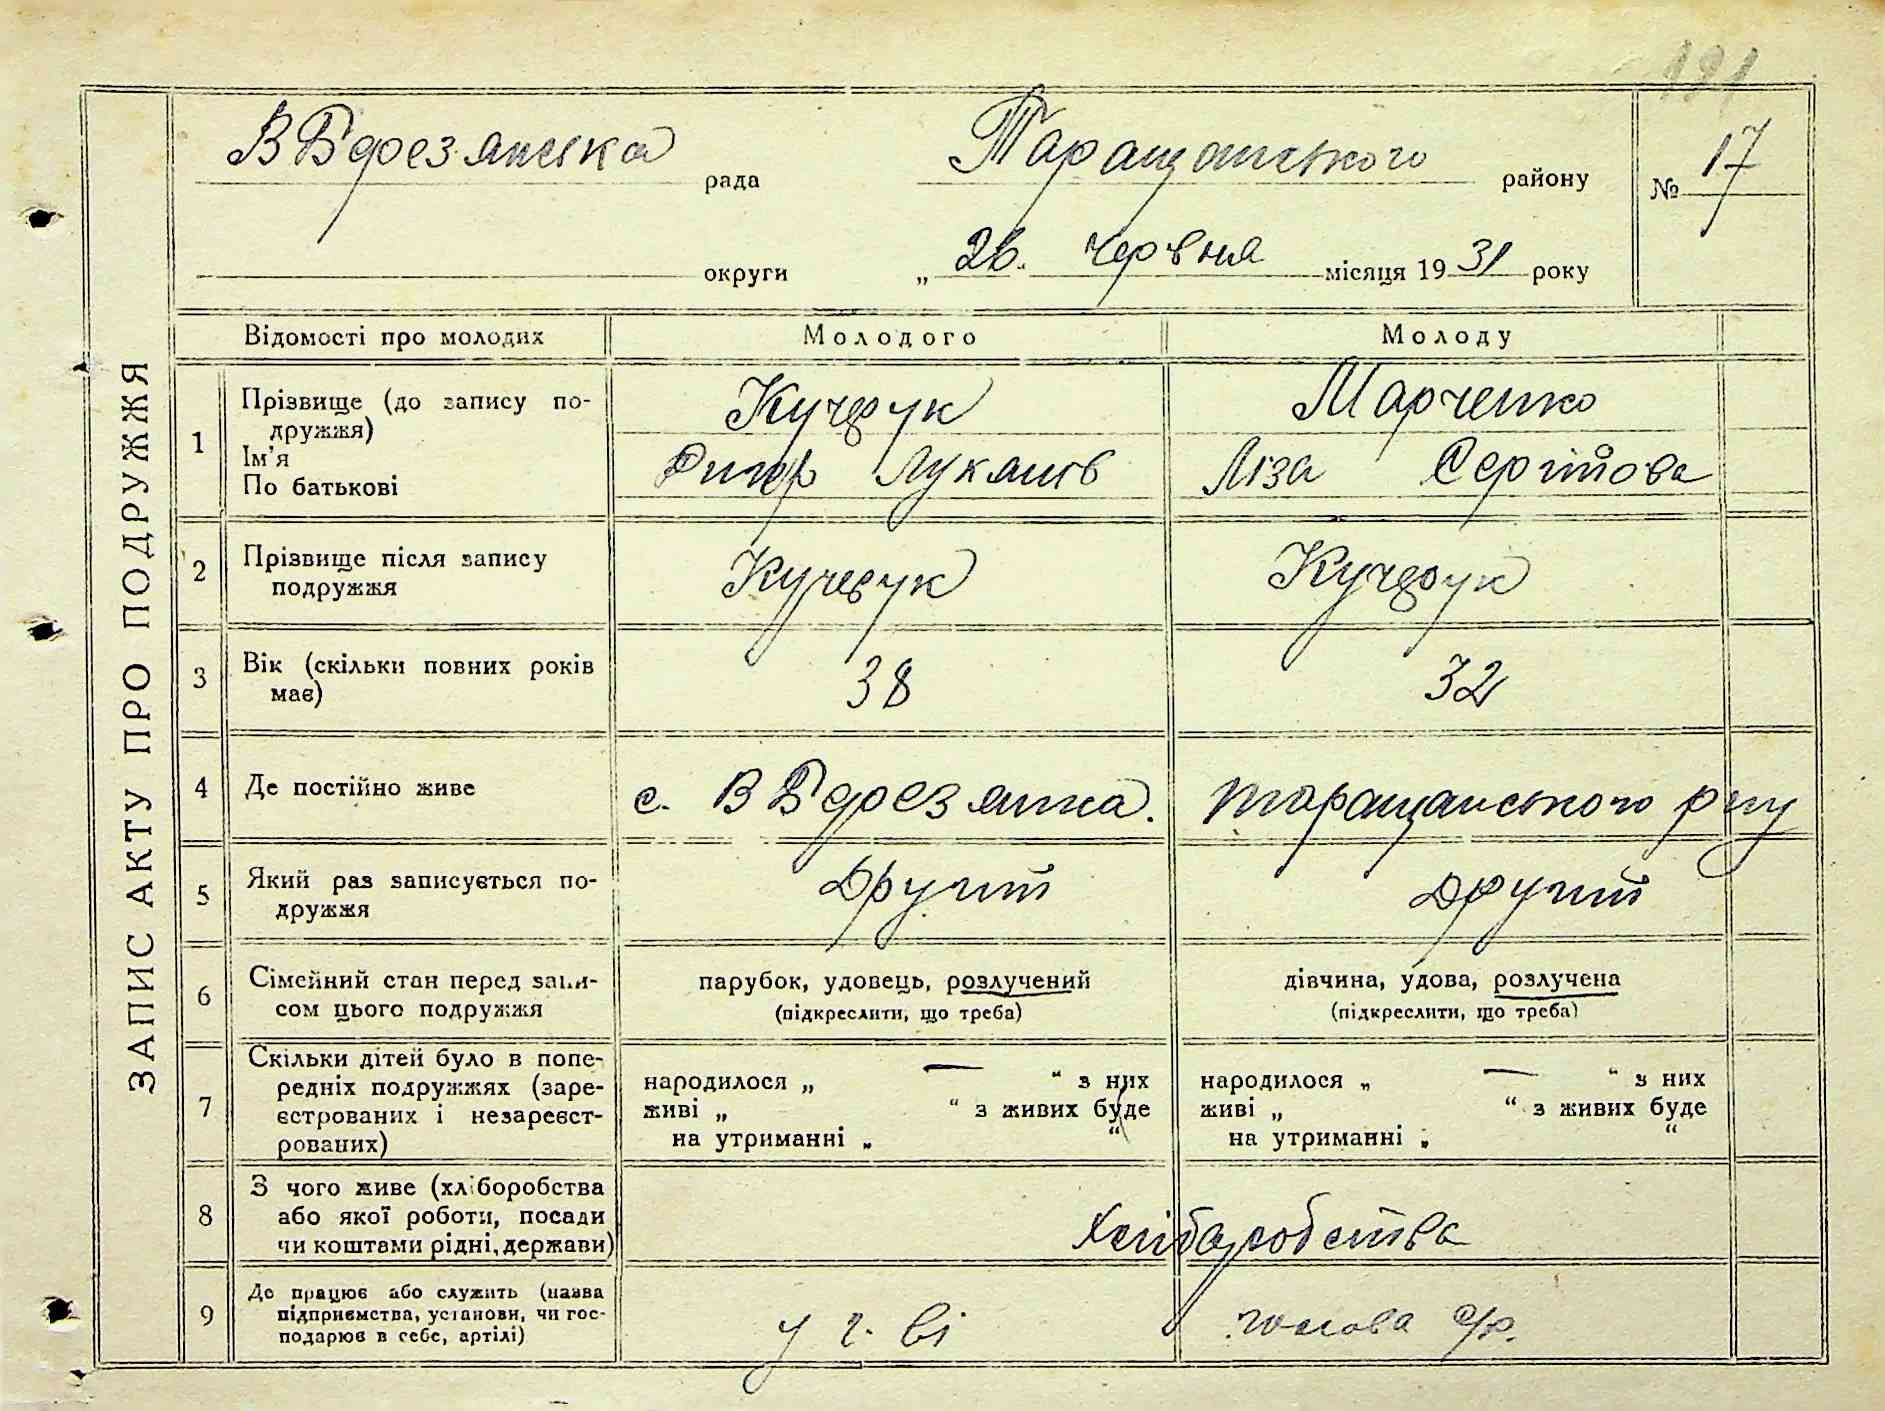 191
В Березянська рада Таращанського району № 17
округи „ 26 “ червня місяця 1931 року
ЗАПИС АКТУ ПРО ПОДРУЖЖЯ
Відомості про молодих Молодого Молоду
1 Прізвище (до запису по-
дружжя)
Ім’я
По батькові
Кучерук Марченко
Лукянів Ліза Сергіїова
2 Прізвище після запису
подружжя
Кучерук Кучерук
3 Вік (скільки повних років
має)
38 32
4 Де постійно живе с. В Березянка. таращанського рну
5 Який раз записується по-
дружжя
Другий Другий
6 Сімейний стан перед запи-
сом цього подружжя
парубок, удовець, розлучений дівчина, удова, розлучена
(підкреслити, що треба) (підкреслити, що треба)
7 Скільки дітей було в попе-
редніх подружжях (заре-
єстрованих і незареєст-
рованих)
народилося „ — “ з них народилося „ — “ з них
живі „ “ з живих буде живі „ “ з живих буде
на утриманні „ “ на утриманні „ “
8 З чого живе (хліборобства
або якої роботи, посади
чи коштами рідні, держави)
Хлібаробства
9 Де працює або служить (назва
підприємства, установи, чи гос-
подарює в себе, артілі)
голова с/р.